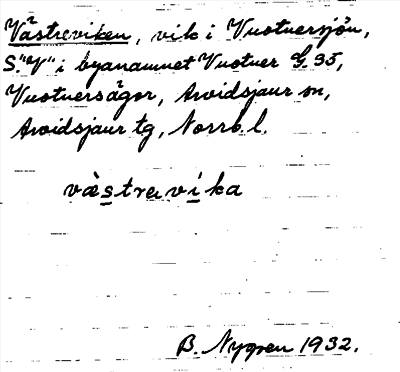 Västreviken, vik i Vuotnersjön,
S. "V" i byanamnet Vuotner G. 35,
Vuotnersågor, Arvidsjaur sn,
Arvidsjaur tg, Norrb. l.
västravika
B. Nygren 1932.